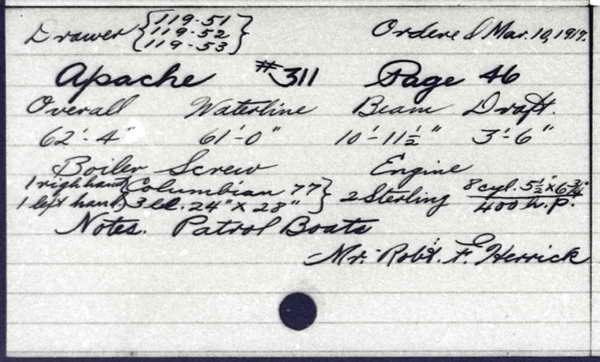 Drawer { 119-51 Ordered Mar. 10, 1917.
119-52
119-53 }
Apache #311 Page 46
Overall Waterline Beam Draft.
62'-4" 61'-0" 10'-11½" 3'-6"
Boiler Screw Engine
1 righ hand } Columbian 77 } 2 Sterling 8 cyl. 5½" x 6¾"
1 left hand } 3 bl. 24" x 28" 400 h.p.
Notes. Patrol Boats
Mr. Robt. F. Herrick